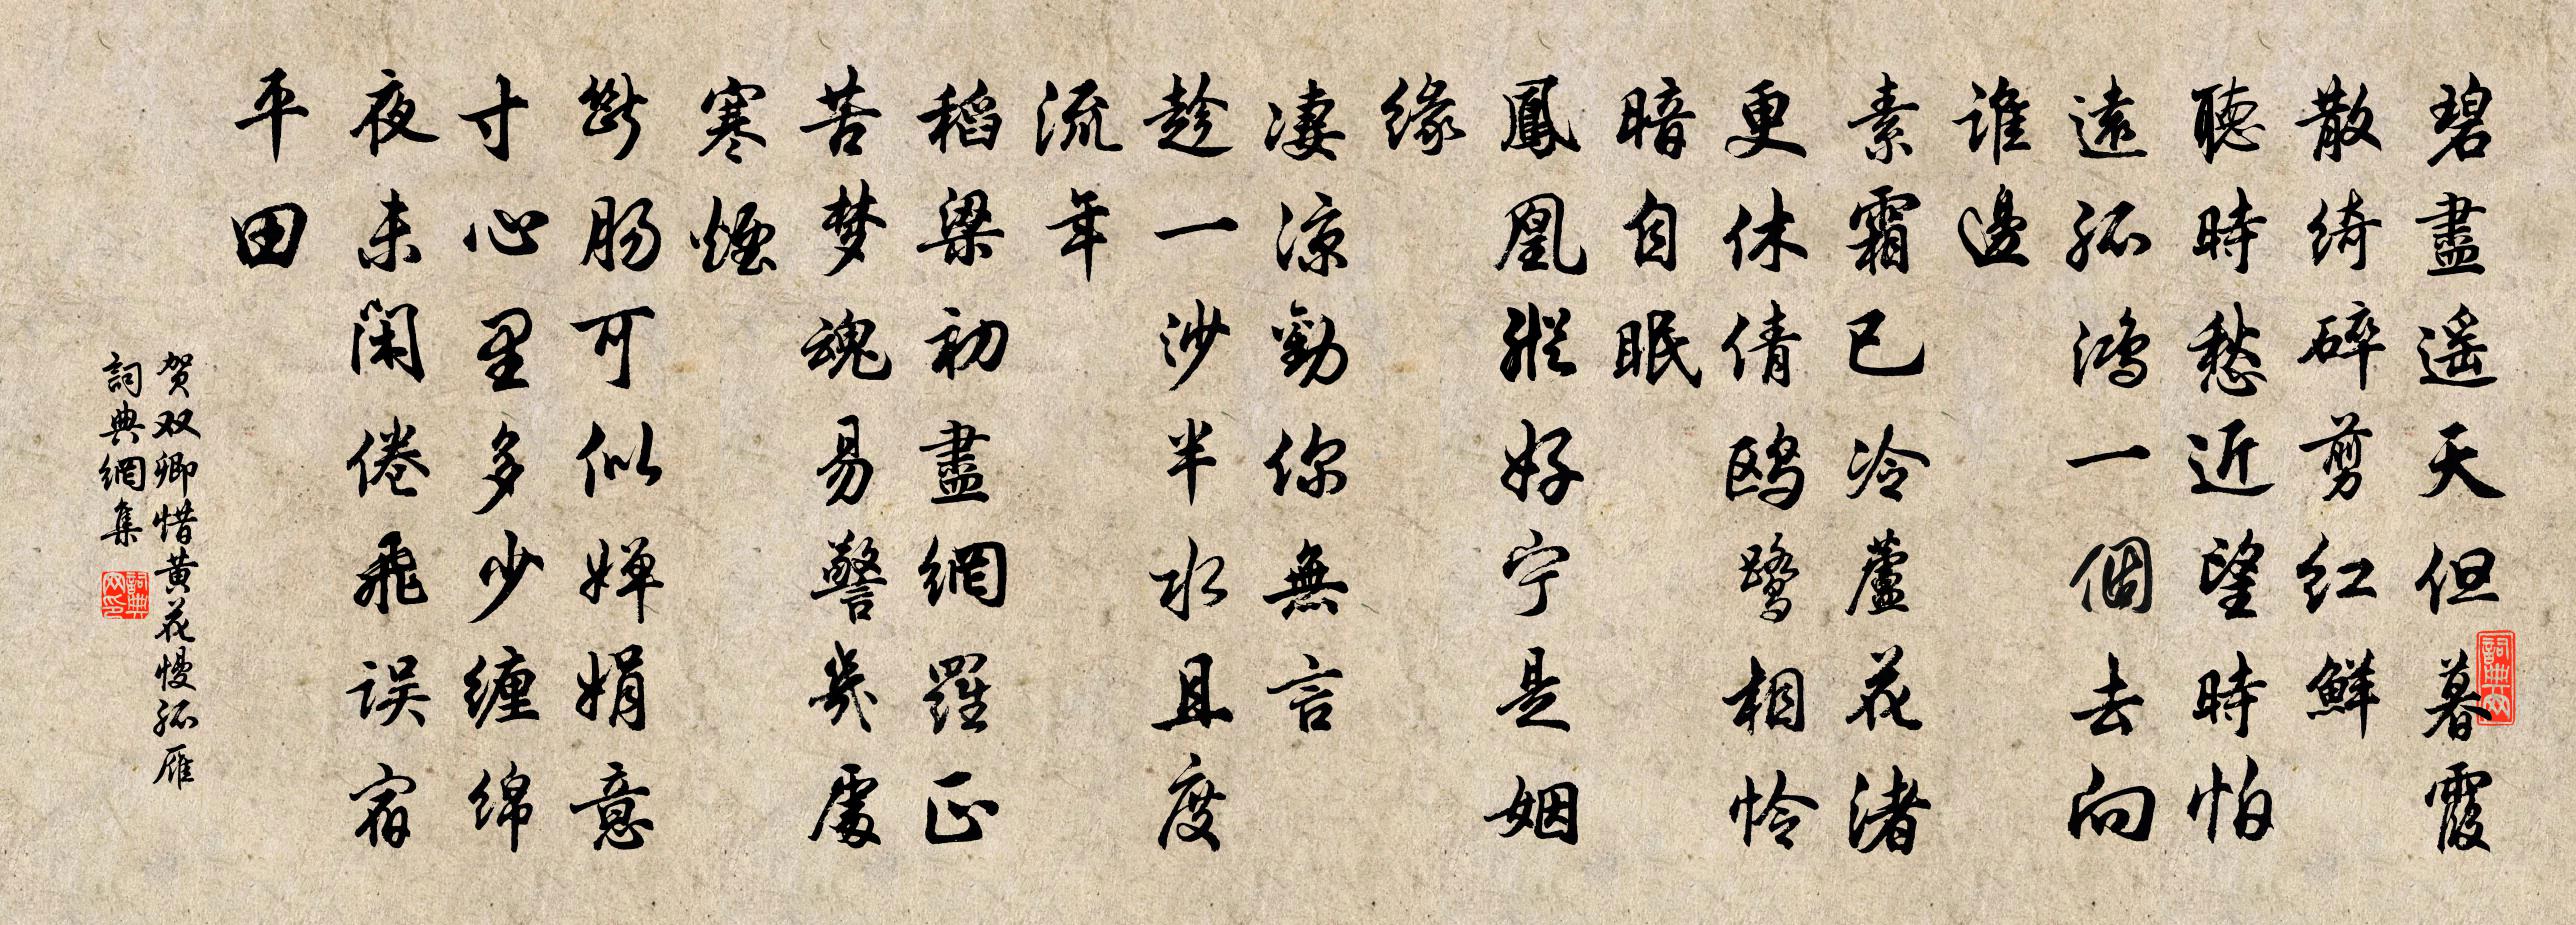 碧盡遥天但暮霞
散绮碎剪红鮮
聽時愁近望時怕
遠孤鸿一個去向
誰邊
素霜已冷蘆花渚
更休倩鸥鹭相怜
暗自眠
鳳凰縱好宁是姻
缘
凄凉勸你無言
趁一沙半水且度
流年
稻粱初盡網羅正
苦梦魂易警幾處
寒煙
斷肠可似婵娟意
寸心里多少缠绵
夜未闲倦飛误宿
平田
贺双卿惜黄花慢孤雁
詞典網集
詞典网印
詞典网